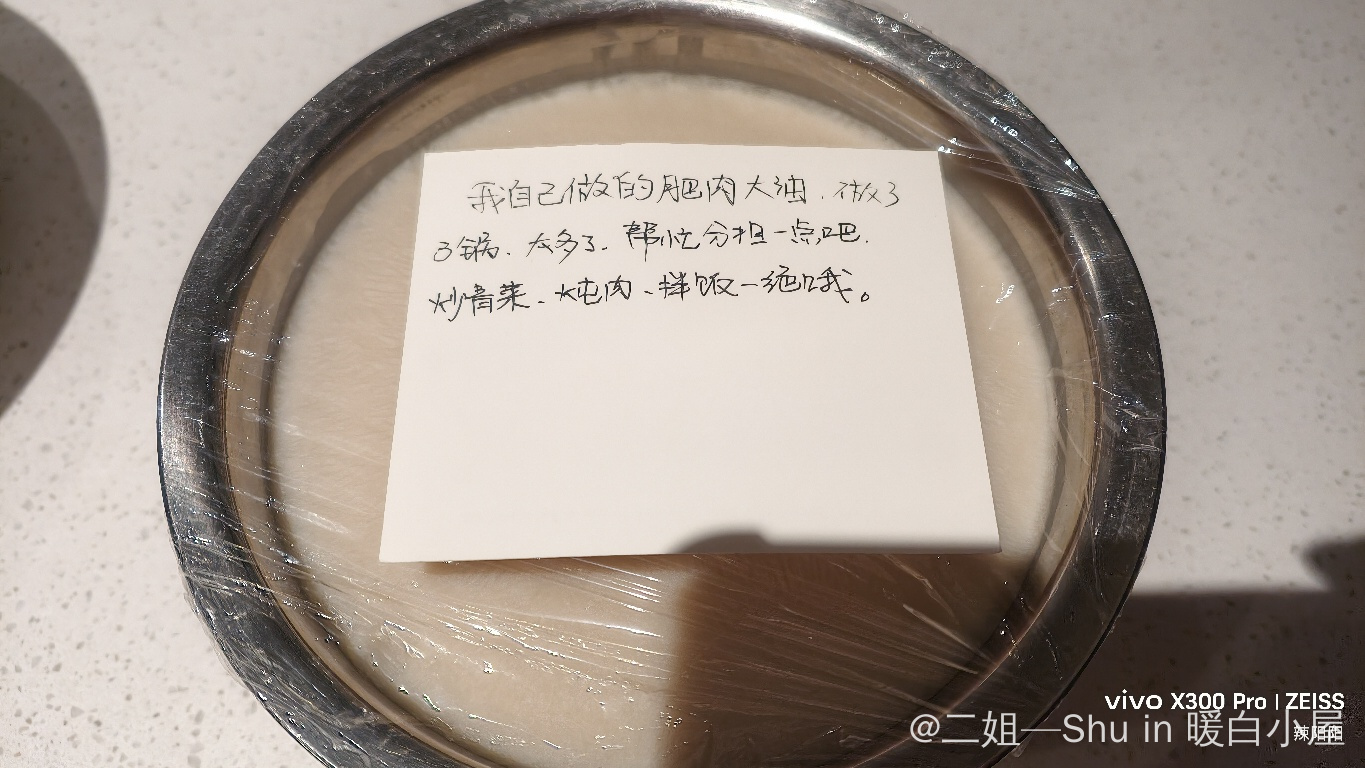 我自己做的肥肉大油．做了
3锅、太多了．帮忙分担一点吧．
炒青菜、炖肉、拌饭一绝哦。
vivo X300 Pro | ZEISS
@二姐—Shu in 暖白小屋